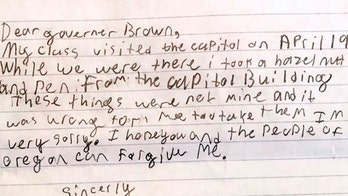 Dear governer Brown,
My class visited the capitol on April 19
While we were there i took a hazel nut
and pen from the capitol Building
these things were not mine and it
was wrong form me to take them I'm
very sorry. I hope you and the people of
oregon can forgive me.
Sincerly